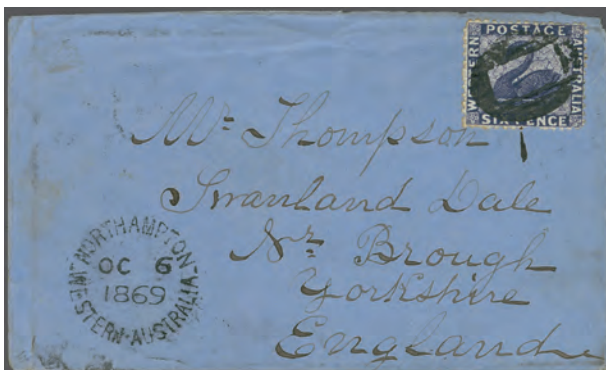 POSTAGE
WESTERN
AUSTRALIA
SIX PENCE
Mr. Thompson
Swanland Dale
Nr. Brough
Yorkshire
England
NORTHAMPTON
OC 6
1869
WESTERN-AUSTRALIA